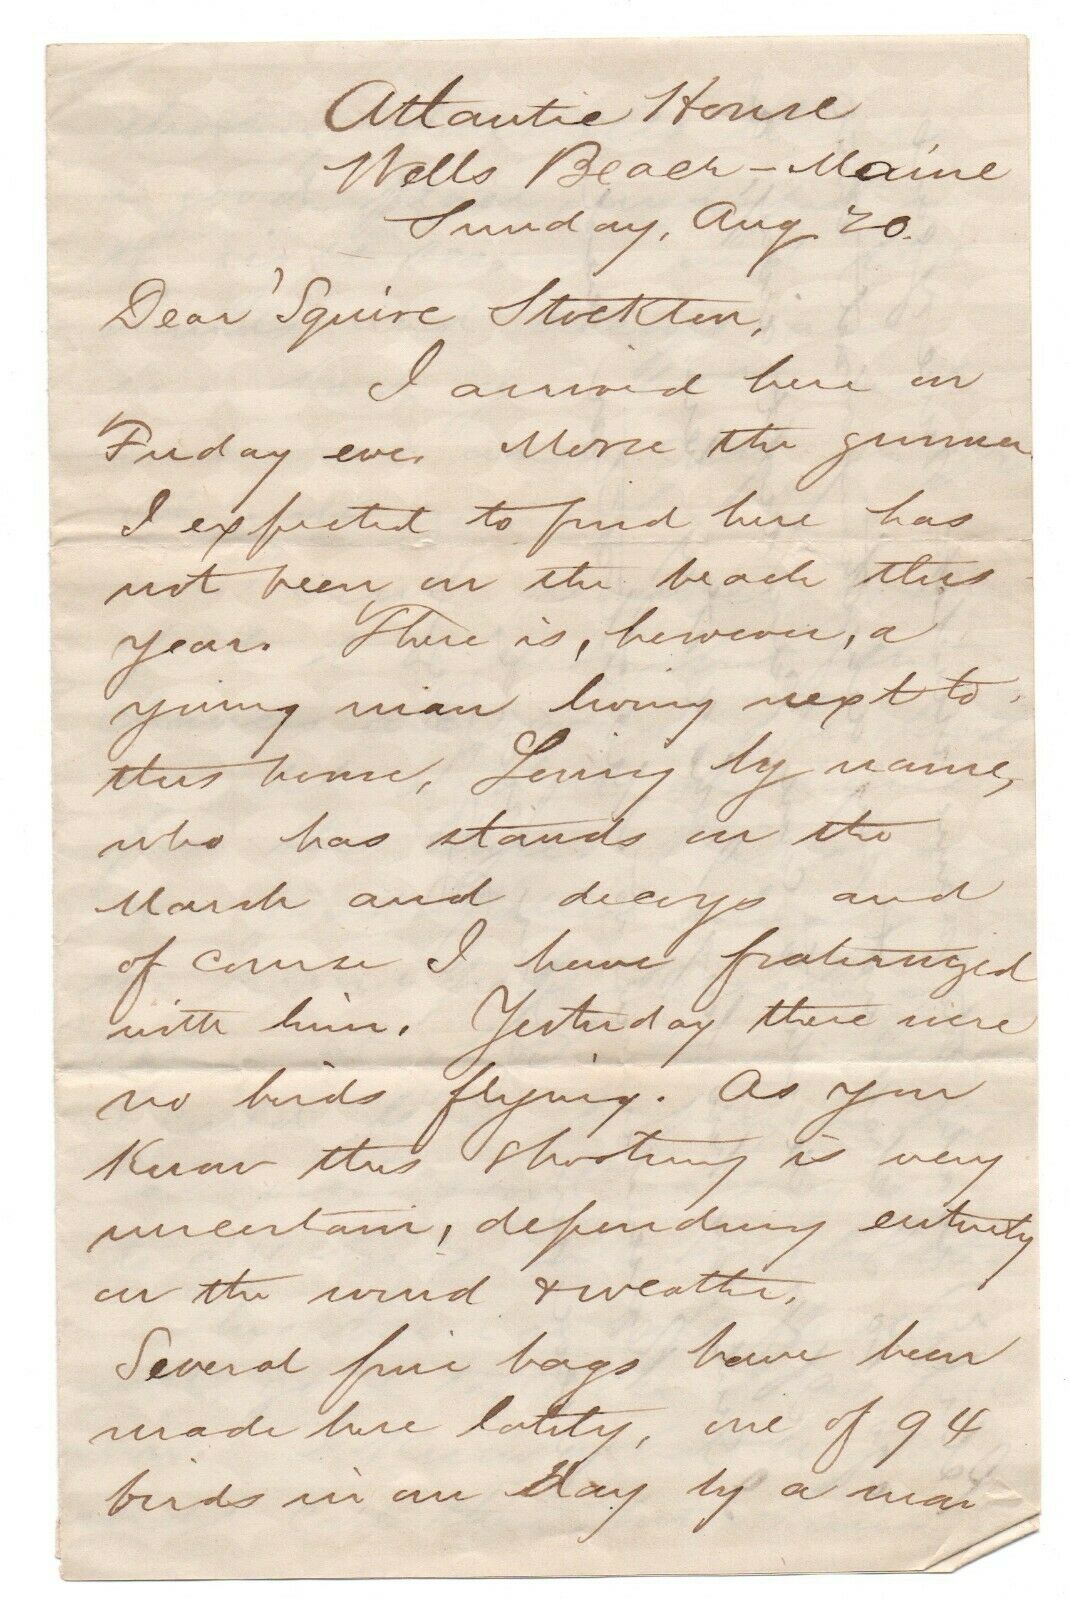 Atlantic House
Wells Beach - Maine
Sunday, Aug 20.
Dear 'Squire Stockton,
I arrived here on
Friday eve. Morse the gunner
I expected to find here has
not been on the beach this
year. There is, however, a
young man living next to
this house, Loring by name,
who has stands on the
Marsh and decoys and
of course I have fraternized
with him. Yesterday there were
no birds flying. As you
know this shooting is very
uncertain, depending entirely
on the wind & weather.
Several fine bags have been
made here lately, one of 94
birds in one day by a man